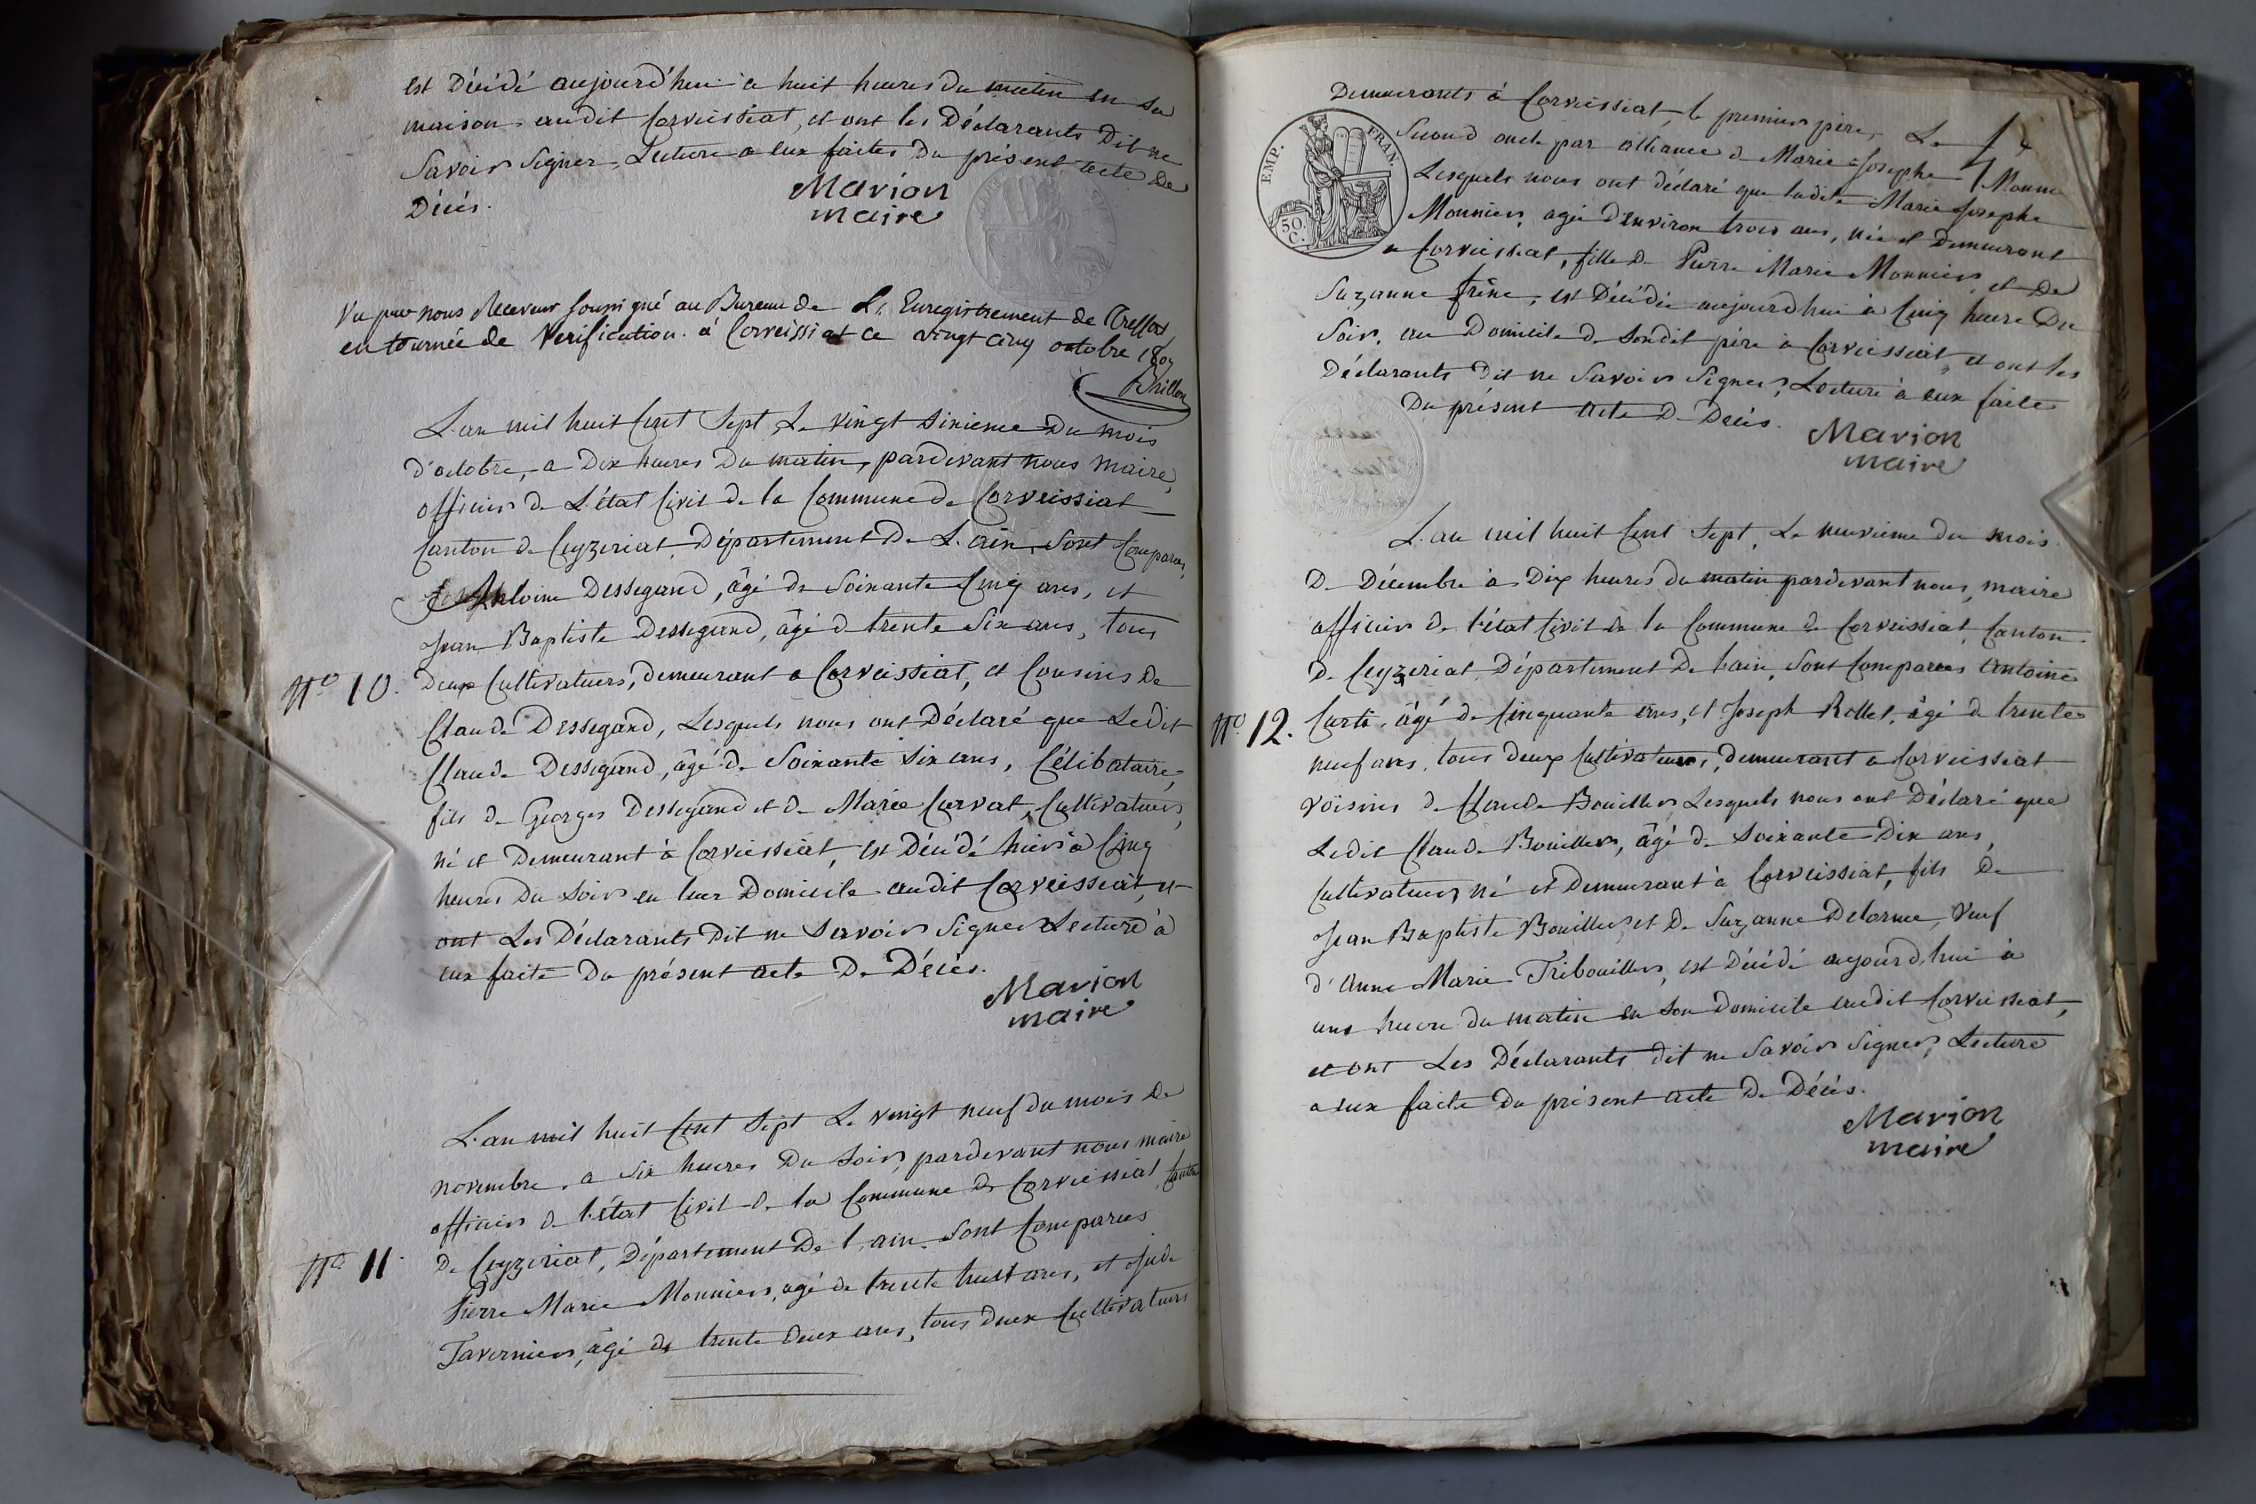 est Décédé aujourd'hui à huit heures du matin en sa
maison audit Corveissiat, et ont les Déclarants Dit ne
Savoir Signer, Lecture a eux faites du présent acte De
Décès.
Marion
maire
Vu par nous Receveur soussigné au Bureau de L'Enregistrement de Treffort
en tournée de Verification à Corveissiat ce vingt cinq octobre 1807
L'an mil huit Cent Sept, Le vingt sixieme Du mois
d'octobre, a Dix heures Du matin, pardevant nous maire,
officier de L'état Civil de la Commune de Corveissiat
Canton de Ceyzeriat, Département De L'ain, Sont Comparus,
Antoine Dessegand, âgé de Soixante Cinq ans, et
Jean Baptiste Dessegand, âgé de trente Six ans, tous
N° 10. Deux Cultivateurs, demeurant a Corveissiat, et Cousins De
Claude Dessegand, Lesquels nous ont Déclaré que Ledit
Claude Dessegand, âgé de Soixante Six ans, Célibataire,
fils de Georges Dessegand et de Marie Curvat, Cultivateurs,
né et Demeurant à Corveissiat, est Décédé hier à Cinq
heures Du Soir en leur Domicile audit Corveissiat, et
ont Les Déclarants Dit ne Savoir Signer Lecture à
eux faite Du présent acte De Décès.
Marion
maire
L'an mil huit Cent Sept Le vingt neuf du mois de
novembre, a six heures Du Soir, pardevant nous maire
officier de l'état Civil de la Commune de Corveissiat, Canton
De Ceyzeriat, Département De l'ain, Sont Comparus
N° 11. Pierre Marie Monnier, agé de trente huit ans, et Jude
Tavernier, âgé de trente Deux ans, tous deux Cultivateurs
Demeurants à Corveissiat, le premier père, Le
Second oncle par alliance de Marie Josephe Monnier
EMP. FRAN.
50 C.
Lesquels nous ont déclaré que ladite Marie Josephe
Monnier, agée d'environ trois ans, née et Demeurant
a Corveissiat, fille de Pierre Marie Monnier, et De
Suzanne frêne, est Décédée aujourd'hui à Cinq heure Du
Soir, au Domicile de Sondit père à Corveissiat, et ont les
Déclarants Dit ne Savoir Signer, Lecture à eux faite
Du présent acte De Décès.
Marion
maire
L'an mil huit Cent Sept, Le neuvieme du mois
De Décembre à Dix heures du matin pardevant nous, maire
officier de l'état Civil de la Commune de Corveissiat, Canton
De Ceyzeriat, Département De l'ain, Sont Comparus Antoine
N° 12. âgé de Cinquante ans, et Joseph Rollet, âgé de trente
neuf ans, tous deux Cultivateurs, demeurant a Corveissiat
voisins de Claude Bouiller, Lesquels nous ont Déclaré que
Ledit Claude Bouiller, âgé de Soixante Dix ans,
Cultivateur, né et Demeurant à Corveissiat, fils De
Jean Baptiste Bouiller et De Suzanne Delorme, veuf
d'Anne Marie Tribouiller, est Décédé aujourd'hui à
une heure du matin en Son Domicile audit Corveissiat,
et ont Les Déclarants dit ne Savoir Signer, Lecture
a eux faite Du présent acte De Décès.
Marion
maire